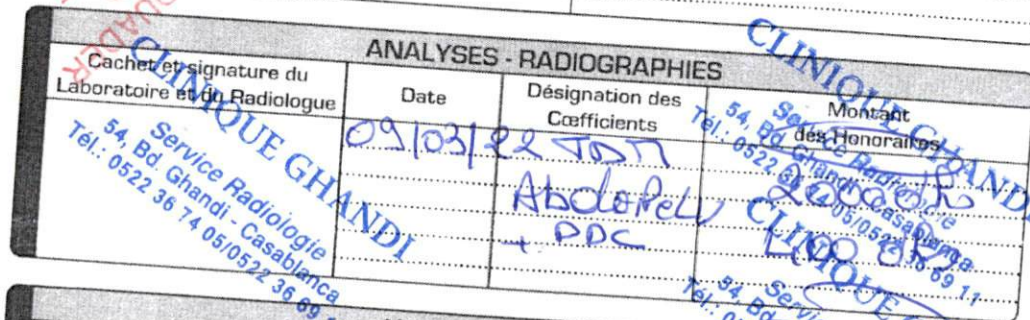 ANALYSES - RADIOGRAPHIES
Cachet et signature du
Laboratoire et du Radiologue
Date
Désignation des
Cœfficients
Montant
des Honoraires
09/03/22 TDM
AbdoPelv
+ PDC
CLINIQUE GHANDI
Service Radiologie
54, Bd. Ghandi - Casablanca
Tél.: 0522 36 74 05/0522 36 69
CLINIQUE GHANDI
Service Radiologie
54, Bd. Ghandi - Casablanca
Tél.: 0522 36 74 05/0522 36 69 11
CLINIQUE
Servi
54, Bd
Tél.: 0